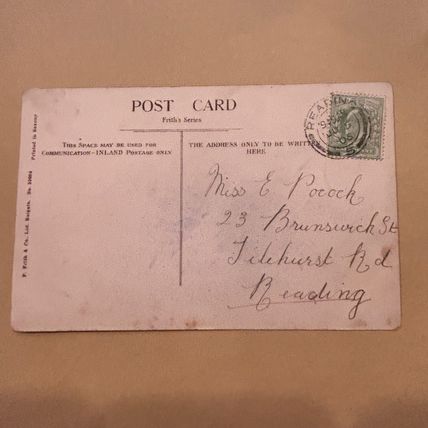 POST CARD
Frith's Series
THIS SPACE MAY BE USED FOR
COMMUNICATION—INLAND POSTAGE ONLY
THE ADDRESS ONLY TO BE WRITTEN
HERE
Miss E Pocock
23 Brunswick St
Tilehurst Rd
Reading
READING
F. Frith & Co., Ltd. Reigate. No.
Printed in Saxony